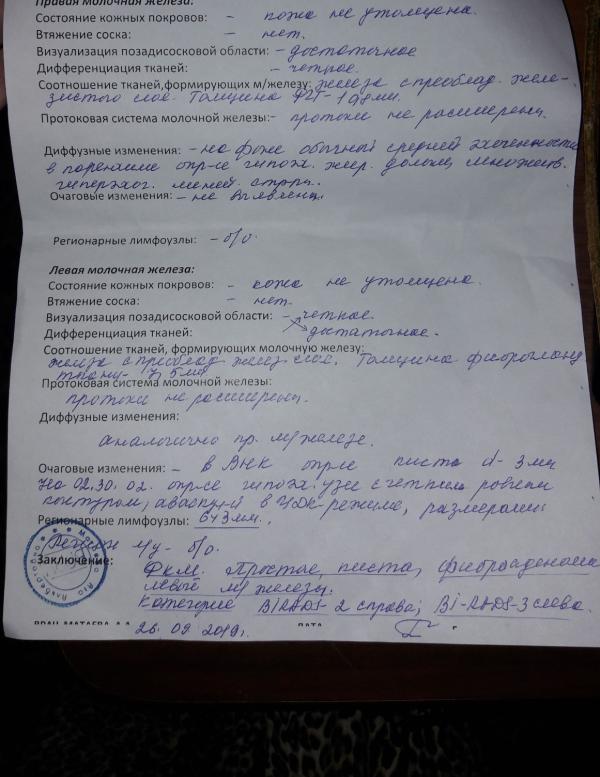 Правая молочная железа:
Состояние кожных покровов: - кожа не утолщена.
Втяжение соска: - нет.
Визуализация позадисосковой области: - достаточное
Дифференциация тканей: - четкое.
Соотношение тканей,формирующих м/железу: железа с преоблад. желе-
зистого слоя. Толщина
Протоковая система молочной железы:- протоки не расширены.
Диффузные изменения: - на фоне обычной средней эхогенности
в паренхиме опр-ся гипоэх. жир. дольки, множеств.
гиперэхог. линей. стр-ры.
Очаговые изменения: - не выявлены.
Регионарные лимфоузлы: - б/о.
Левая молочная железа:
Состояние кожных покровов: - кожа не утолщена.
Втяжение соска: - нет.
Визуализация позадисосковой области: - четкое.
Дифференциация тканей: достаточное.
Соотношение тканей, формирующих молочную железу:
железа с преоблад. желез. слоя. Толщина фиброгланд
ткани-
Протоковая система молочной железы:
протоки не расширены.
Диффузные изменения:
аналогично пр. м/железе.
Очаговые изменения: - в ВНК опр-ся киста d-3мм
На 02.30. опр-ся гипоэх. узел с четким ровным
контуром, аваскул-й в ЦДК-режиме, размерами
Регионарные лимфоузлы: 6×3мм.,
л/у- б/о.
Заключение: ФКМ. Простые киста, фиброаденома
левые м/железы.
Категория BIRADS-2 справа; BI-RADS-3 слева.
ВРАЧ МАТАЕВА А.А. 26.09.2019г. ДАТА